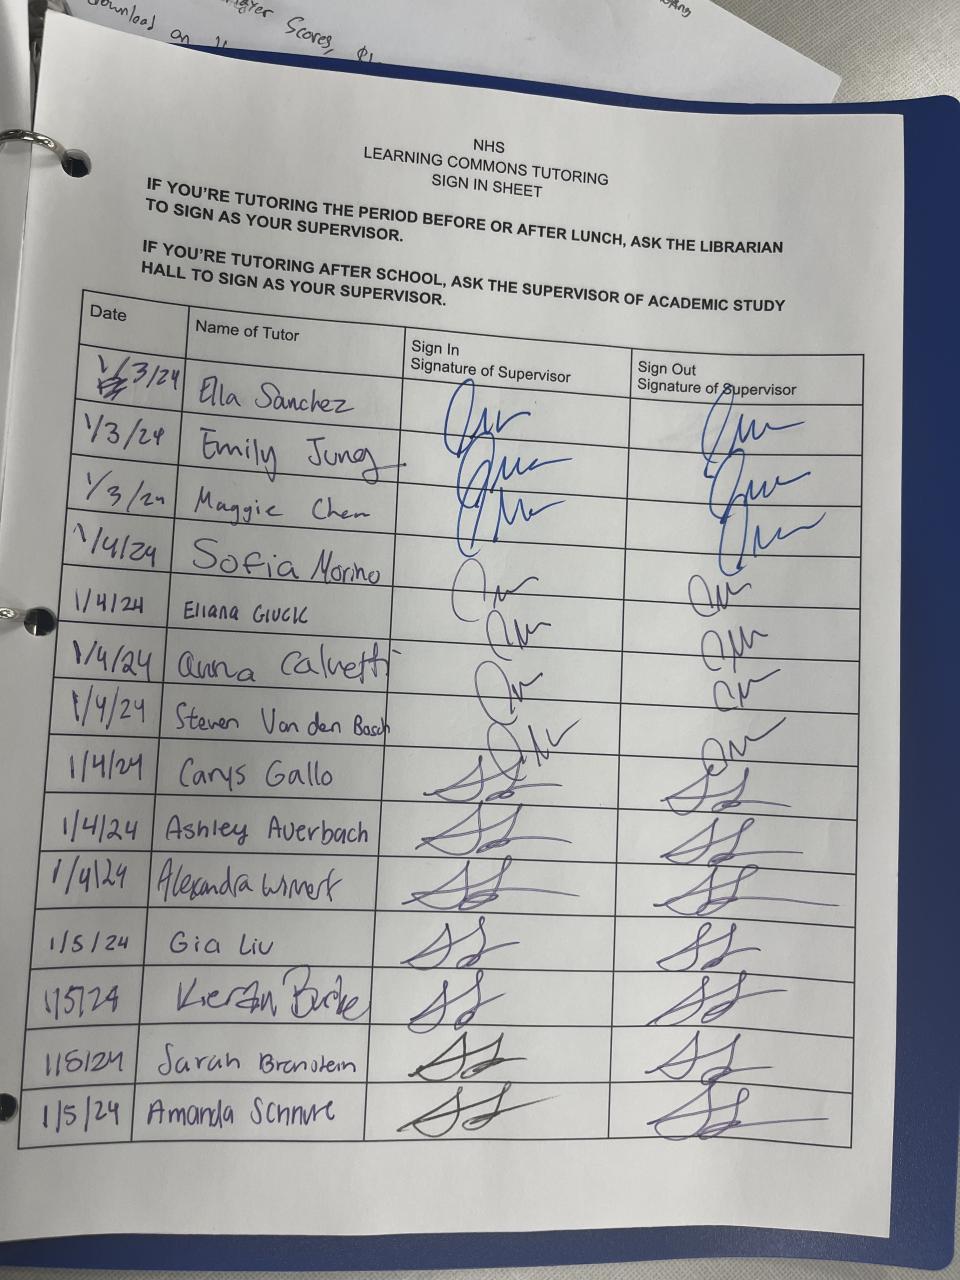 Scores,
Download on
NHS
LEARNING COMMONS TUTORING
SIGN IN SHEET
IF YOU'RE TUTORING THE PERIOD BEFORE OR AFTER LUNCH, ASK THE LIBRARIAN
TO SIGN AS YOUR SUPERVISOR.
IF YOU'RE TUTORING AFTER SCHOOL, ASK THE SUPERVISOR OF ACADEMIC STUDY
HALL TO SIGN AS YOUR SUPERVISOR.
Date Name of Tutor Sign In Signature of Supervisor Sign Out Signature of Supervisor
1/3/24 Ella Sanchez
1/3/24 Emily Jung
1/3/24 Maggie Chen
1/4/24 Sofia Morino
1/4/24 Eliana Gluck
1/4/24 Anna Calvetti
1/4/24 Steven Van den Bosch
1/4/24 Carys Gallo
1/4/24 Ashley Auerbach
1/4/24 Alexandra
1/5/24 Gia Liu
1/5/24 Kieran Burke
1/5/24 Sarah Bronstein
1/5/24 Amanda Schnure